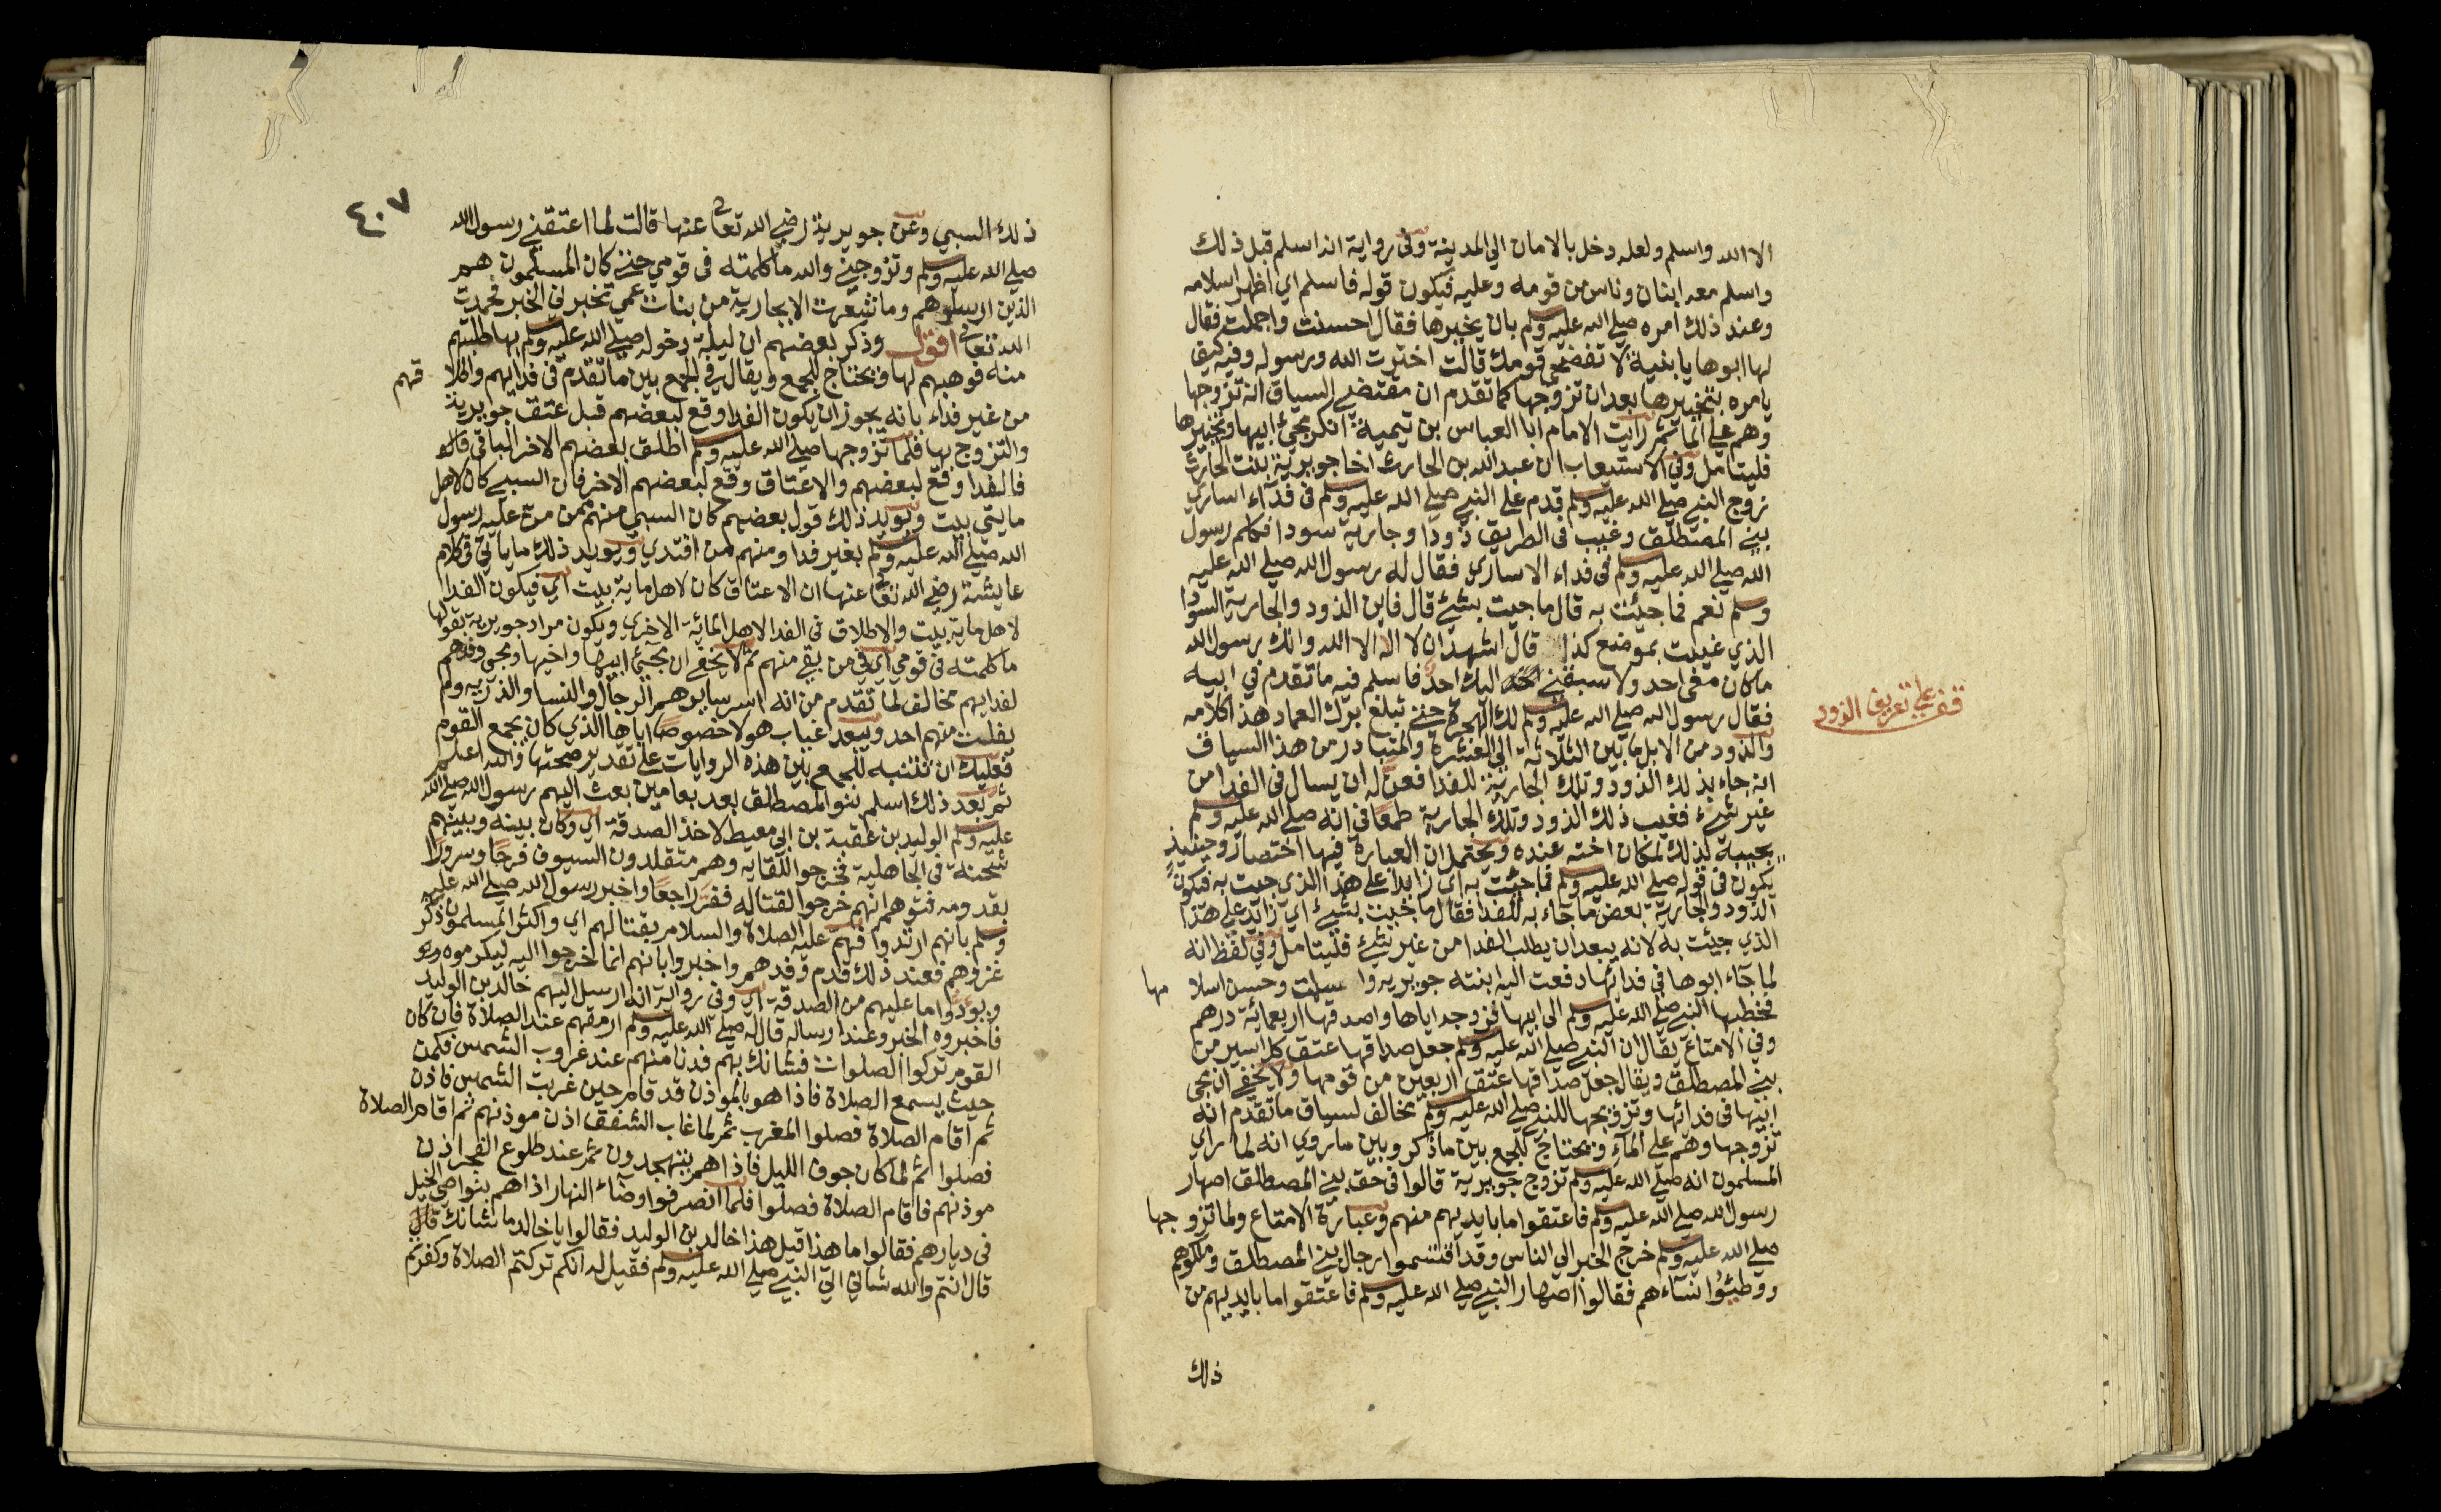 الا الله واسلم ولعله دخل بالامان الي المدينة وفي رواية انه اسلم قبل ذلك
واسلم معه ابنان وناس من قومه وعليه فيكون قوله فاسلم اي اظهر اسلامه
وعند ذلك امره صلي الله عليه وسلم بان يخيرها فقال احسنت واجملت فقال
لها ابوها يا بنية لا تفضحي قومك قالت اخترت الله ورسوله وفيه كيف
يامره بتخييرها بعد ان تزوجها كما تقدم ان مقتضي السياق انه تزوجها
وهم علي الما ثم رايت الامام ابا العباس بن تيمية انكر مجئ ابيها وتخييرها
فليتامل وفي الاستيعاب ان عبد الله بن الحارث اخا جويرية بنت الحارث
زوج النبي صلي الله عليه وسلم قدم علي النبي صلي الله عليه وسلم في فدآء اساري
بني المصطلق وغيب في الطريق ذودا وجارية سودا فكلم رسول
الله صلي الله عليه وسلم في فداء الاساري فقال له رسول الله صلي الله عليه
وسلم نعم فما جئت به قال ما جيت بشئ قال فاين الذود والجارية السودا
الذي غيبت بموضع كذا قال اشهد ان لا اله الا الله وانك رسول الله
ما كان معي احد ولا سبقني اليك احد فاسلم فيه ما تقدم في ابيه
فقال رسول الله صلي الله عليه وسلم لك الهجرة حتي تبلغ برك الغماد هذا كلامه
والذود من الابل ما بين الثلاثة الي العشرة والمتبادر من هذا السياق
انه جاء بذلك الذود وتلك الجارية للفدا فعن له ان يسال في الفدا من
غير شئ فغيب ذلك الذود وتلك الجارية طمعا في انه صلي الله عليه وسلم
يجيبه لذلك لمكان اخته عنده ويحتمل ان العبارة فيها اختصار وحينيذ
يكون في قوله صلي الله عليه وسلم فما جئت به اي زايدا علي هذا الذي جيت به فيكون
الذود والجارية بعض ما جاء به للفدا فقال ما جيت بشئ اي زايد علي هذا
الذي جيئت به لانه يبعد ان يطلب الفدا من غير شئ فليتامل وفي لفظ انه
لما جآء ابوها في فدائها دفعت اليه ابنته جويريه واسلمت وحسن اسلامها
فخطبها النبي صلي الله عليه وسلم الي ابيها فزوجه اياها واصدقها اربعمائة درهم
وفي الامتاع يقال ان النبي صلي الله عليه وسلم جعل صداقها عتق كل اسير من
بني المصطلق ويقال جعل صداقها عتق اربعين من قومها ولا يخفي ان مجي
ابيها في فدائها وتزويجها للنبي صلي الله عليه وسلم مخالف لسياق ما تقدم انه
تزوجها وهم علي المآء ويحتاج للجمع بين ما ذكر وبين ما روي انه لما راي
المسلمون انه صلي الله عليه وسلم تزوج جويرية قالوا في حق بني المصطلق اصهار
رسول الله صلي الله عليه وسلم فاعتقوا ما بايديهم منهم وعبارة الامتاع ولما تزوجها
صلي الله عليه وسلم خرج الخبر الي الناس وقد اقتسموا رجال بني المصطلق وملكوهم
ووطئوا نسآءهم فقالوا اصهار النبي صلي الله عليه وسلم فاعتقوا ما بايديهم من
ذلك
قف علي تعريف الذود
٤٠٧
ذلك السبي وعن جويرية رضي الله تعا عنها قالت لما اعتقني رسول الله
صلي الله عليه وسلم وتزوجني والله ما كلمته في قومي حتي كان المسلمون هم
الذين ارسلوهم وما شعرت الا بجارية من بنات عمي تخبرني الخبر فحمدت
الله تعالي اقول وذكر بعضهم ان ليلة دخوله صلي الله عليه وسلم بها طلبتهم
منه فوهبهم لها ويحتاج للجمع ويقال في الجمع بين ما تقدم في فدايهم واطلاقهم
من غير فداء بانه يجوز ان يكون الفدا وقع لبعضهم قبل عتق جويرية
والتزوج بها فلما تزوجها صلي الله عليه وسلم اطلق بعضهم الاخر الباقي
فالفدا وقع لبعضهم والاعتاق وقع لبعضهم الاخر فان السبي كان لاهل
مايتي بيت ويويد ذلك قول بعضهم كان السبي منهم من من عليه رسول
الله صلي الله عليه وسلم بغير فدا ومنهم من افتدي ويويد ذلك ما ياتي في كلام
عايشة رضي الله تعا عنها ان الاعتاق كان لاهل ماية بيت اي فيكون الفدا
لاهل ماية بيت والاطلاق في الفدا لاهل المائة الاخري ويكون مراد جويرية بقولها
ما كلمته في قومي اي في من بقي منهم ثم لا يخفي ان مجئ ابيها واخيها ومجي وفدهم
لفدايهم مخالف لما تقدم من انه اسر سايرهم الرجال والنسا والذرية ولم
يفلت منهم احد ويبعد غياب هولا خصوصا اباها الذي كان يجمع القوم
فعليك ان تتنبه للجمع بين هذه الروايات علي تقدير صحتها والله اعلم
ثم بعد ذلك اسلم بنو المصطلق بعد بعامين بعث اليهم رسول الله صلي الله
عليه وسلم الوليد بن عقبة بن ابي معيط لاخذ الصدقة اي وكان بينه وبينهم
شحنة في الجاهلية فخرجوا للقايه وهم متقلدون السيوف فرحا وسرورا
بقدومه فتوهم انهم خرجوا لقتاله ففر راجعا واخبر رسول الله صلي الله عليه
وسلم بانهم ارتدوا فهم عليه الصلاة والسلام بقتالهم اي واكثر المسلمون ذكر
غزوهم فعند ذلك قدم وفدهم واخبروا بانهم انما خرجوا اليه ليكرموه
ويودوا ما عليهم من الصدقة اي وفي رواية انه ارسل اليهم خالد بن الوليد
فاخبروه الخبر وعند ارساله قال له صلي الله عليه وسلم ارمقهم عند الصلاة فان كان
القوم تركوا الصلوات فشانك بهم فدنا منهم عند غروب الشمس فكمن
حيث يسمع الصلاة فاذا هو بالموذن قد قام حين غربت الشمس فاذن
ثم اقام الصلاة فصلوا المغرب ثم لما غاب الشفق اذن موذنهم ثم اقام الصلاة
فصلوا ثم لما كان جوف الليل فاذا هم يتهجدون ثم عند طلوع الفجر اذن
موذنهم فاقام الصلاة فصلوا فلما انصرفوا وضآء النهار اذا هم بنواصي الخيل
في ديارهم فقالوا ما هذا قيل هذا خالد بن الوليد فقالوا يا خالد ما شانك قال
قال انتم والله شاني اتي النبي صلي الله عليه وسلم فقيل له انكم تركتم الصلاة وكفرتم